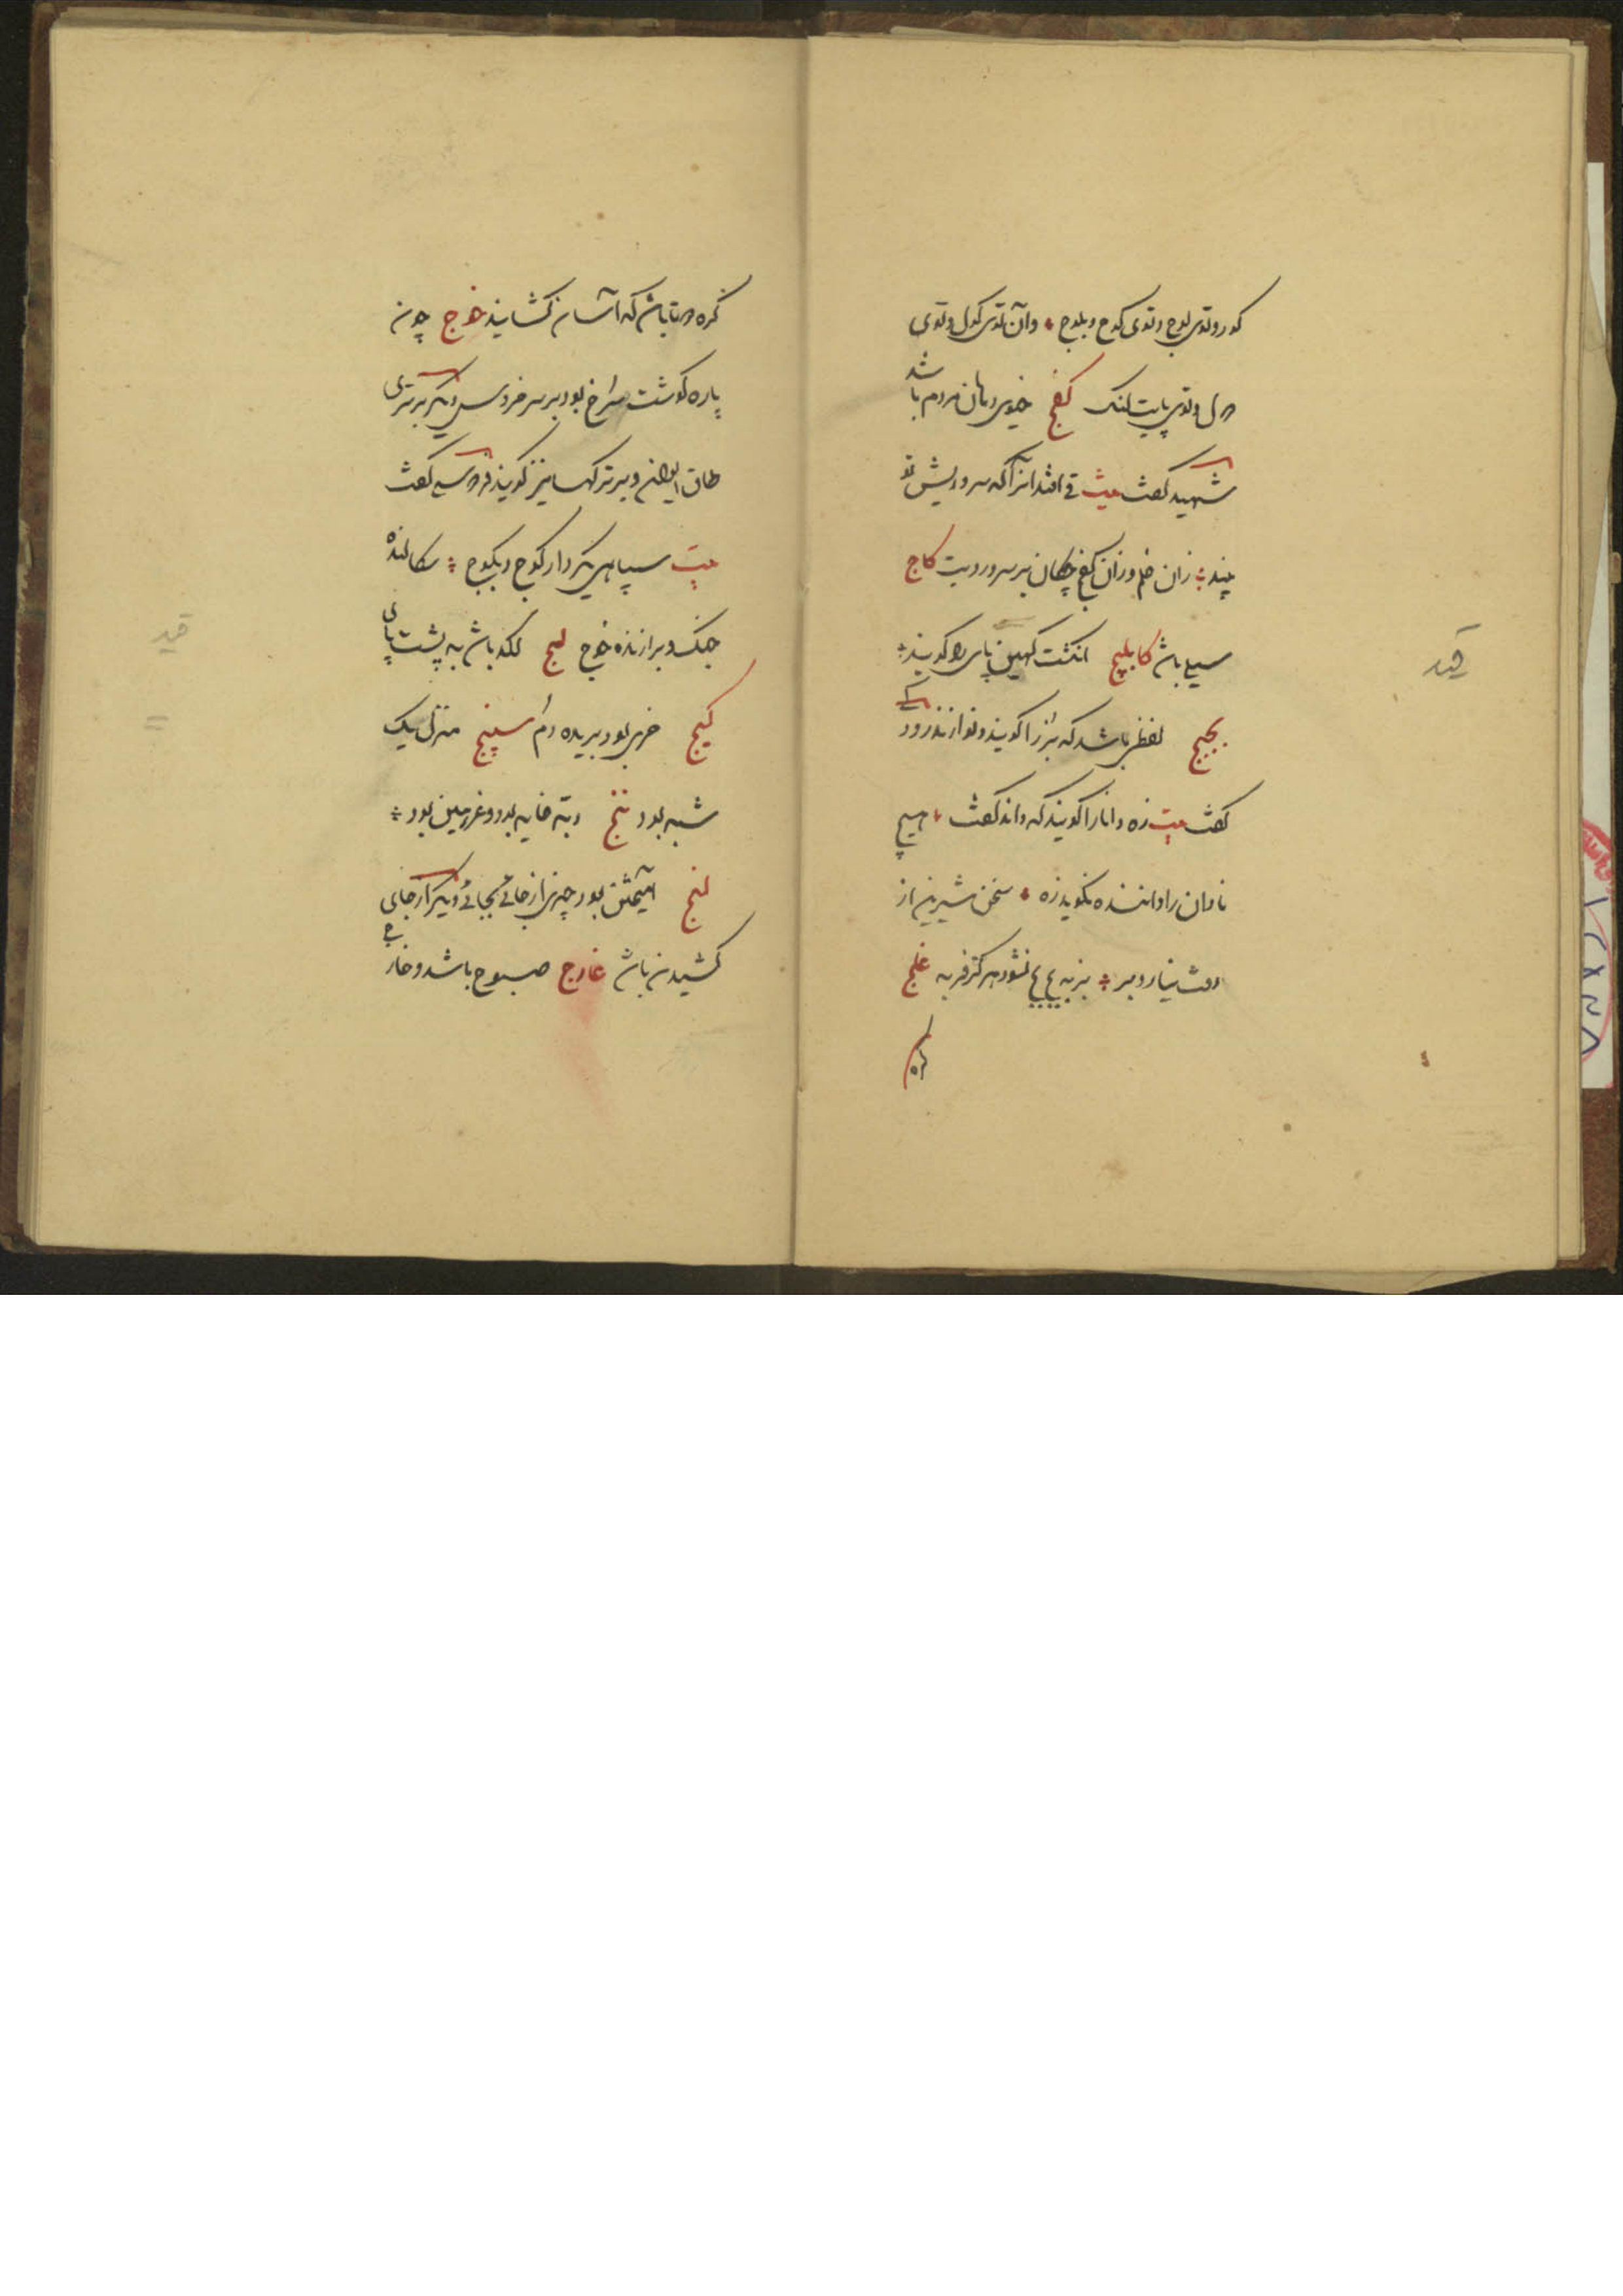 کور و توی لوچ و توی کوچ و بلوچ وآن توی کول و توی
دل و توی پایت لنک کفج خیوی دهان مردم باشد
شهید کفت بیت انرا که سر و ریش تو
چند زان خلم و زان کفج چکان بر سر و رویت کاج
سیلی باشد کابلیج انکشت کهین پای را کویند
بجبج لفظی باشد که بز را کویند و نوازند رود
کفت بیت زه دانا را کویند که داند کفت هیچ
نادان را داننده نکوید زه سخن شیرین از
زفت نیارد بر بز به بج بج نشود هرکز فربه غلج
کره
کره دوتا باشد که آسان نکشایند خوج چون
پاره کوشت سرخ بود بر سر خروس و دیکر برتری
طاق ایوان و برتر کهسار نیز کویند فردوسی کفت
بیت سپاهی بکردار کوج و بلوج سکالنده
جنک و برازنده خوج لج لکد باشد به پشت پای
کیج خری بود بریده دم سپنج منزل یک
شبه بود غنج دبه خایه بود و غر همین بود
لنج آهیختن بود چیزی از جائی بجائی و دیکر از جای
کشیدن باشد غارج صبوح باشد و خار
قید
قید